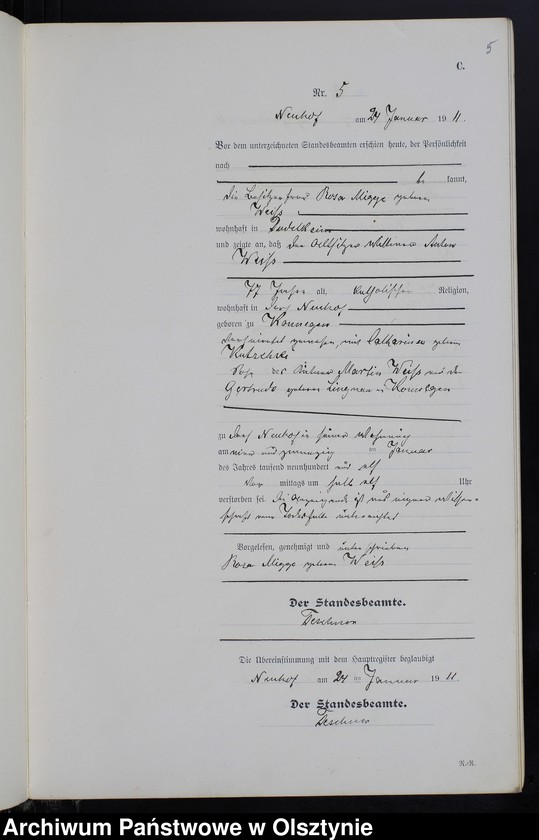 5
C.
Nr. 5
Neuhof am 24 Januar 19 11.
Vor dem unterzeichneten Standesbeamten erschien heute, der Persönlichkeit
nach
be kannt,
die Besitzerfrau Rosa Migge geborene
Weiß
wohnhaft in
und zeigte an, daß der Altsitzer Wittwer Anton
Weiß
77 Jahre alt, katholischer Religion,
wohnhaft in Dorf Neuhof
geboren zu Konnegen
verheiratet gewesen mit Catharina geborene
Sohn des Martin Weiß und der
Gertrude geborene Lingnau in Konnegen
zu Dorf Neuhof in seiner Wohnung
am vier und zwanzig ten Januar
des Jahres tausend neunhundert und elf
Vor mittags um halb elf Uhr
verstorben sei. Die Anzeigende ist aus eigener Wissen-
schaft vom Todesfalle unterrichtet
Vorgelesen, genehmigt und unterschrieben
Rosa Migge geborene Weiß
Der Standesbeamte.
Die Übereinstimmung mit dem Hauptregister beglaubigt
Neuhof am 24 ten Januar 19 11.
Der Standesbeamte.
R.-R.
Archiwum Państwowe w Olsztynie